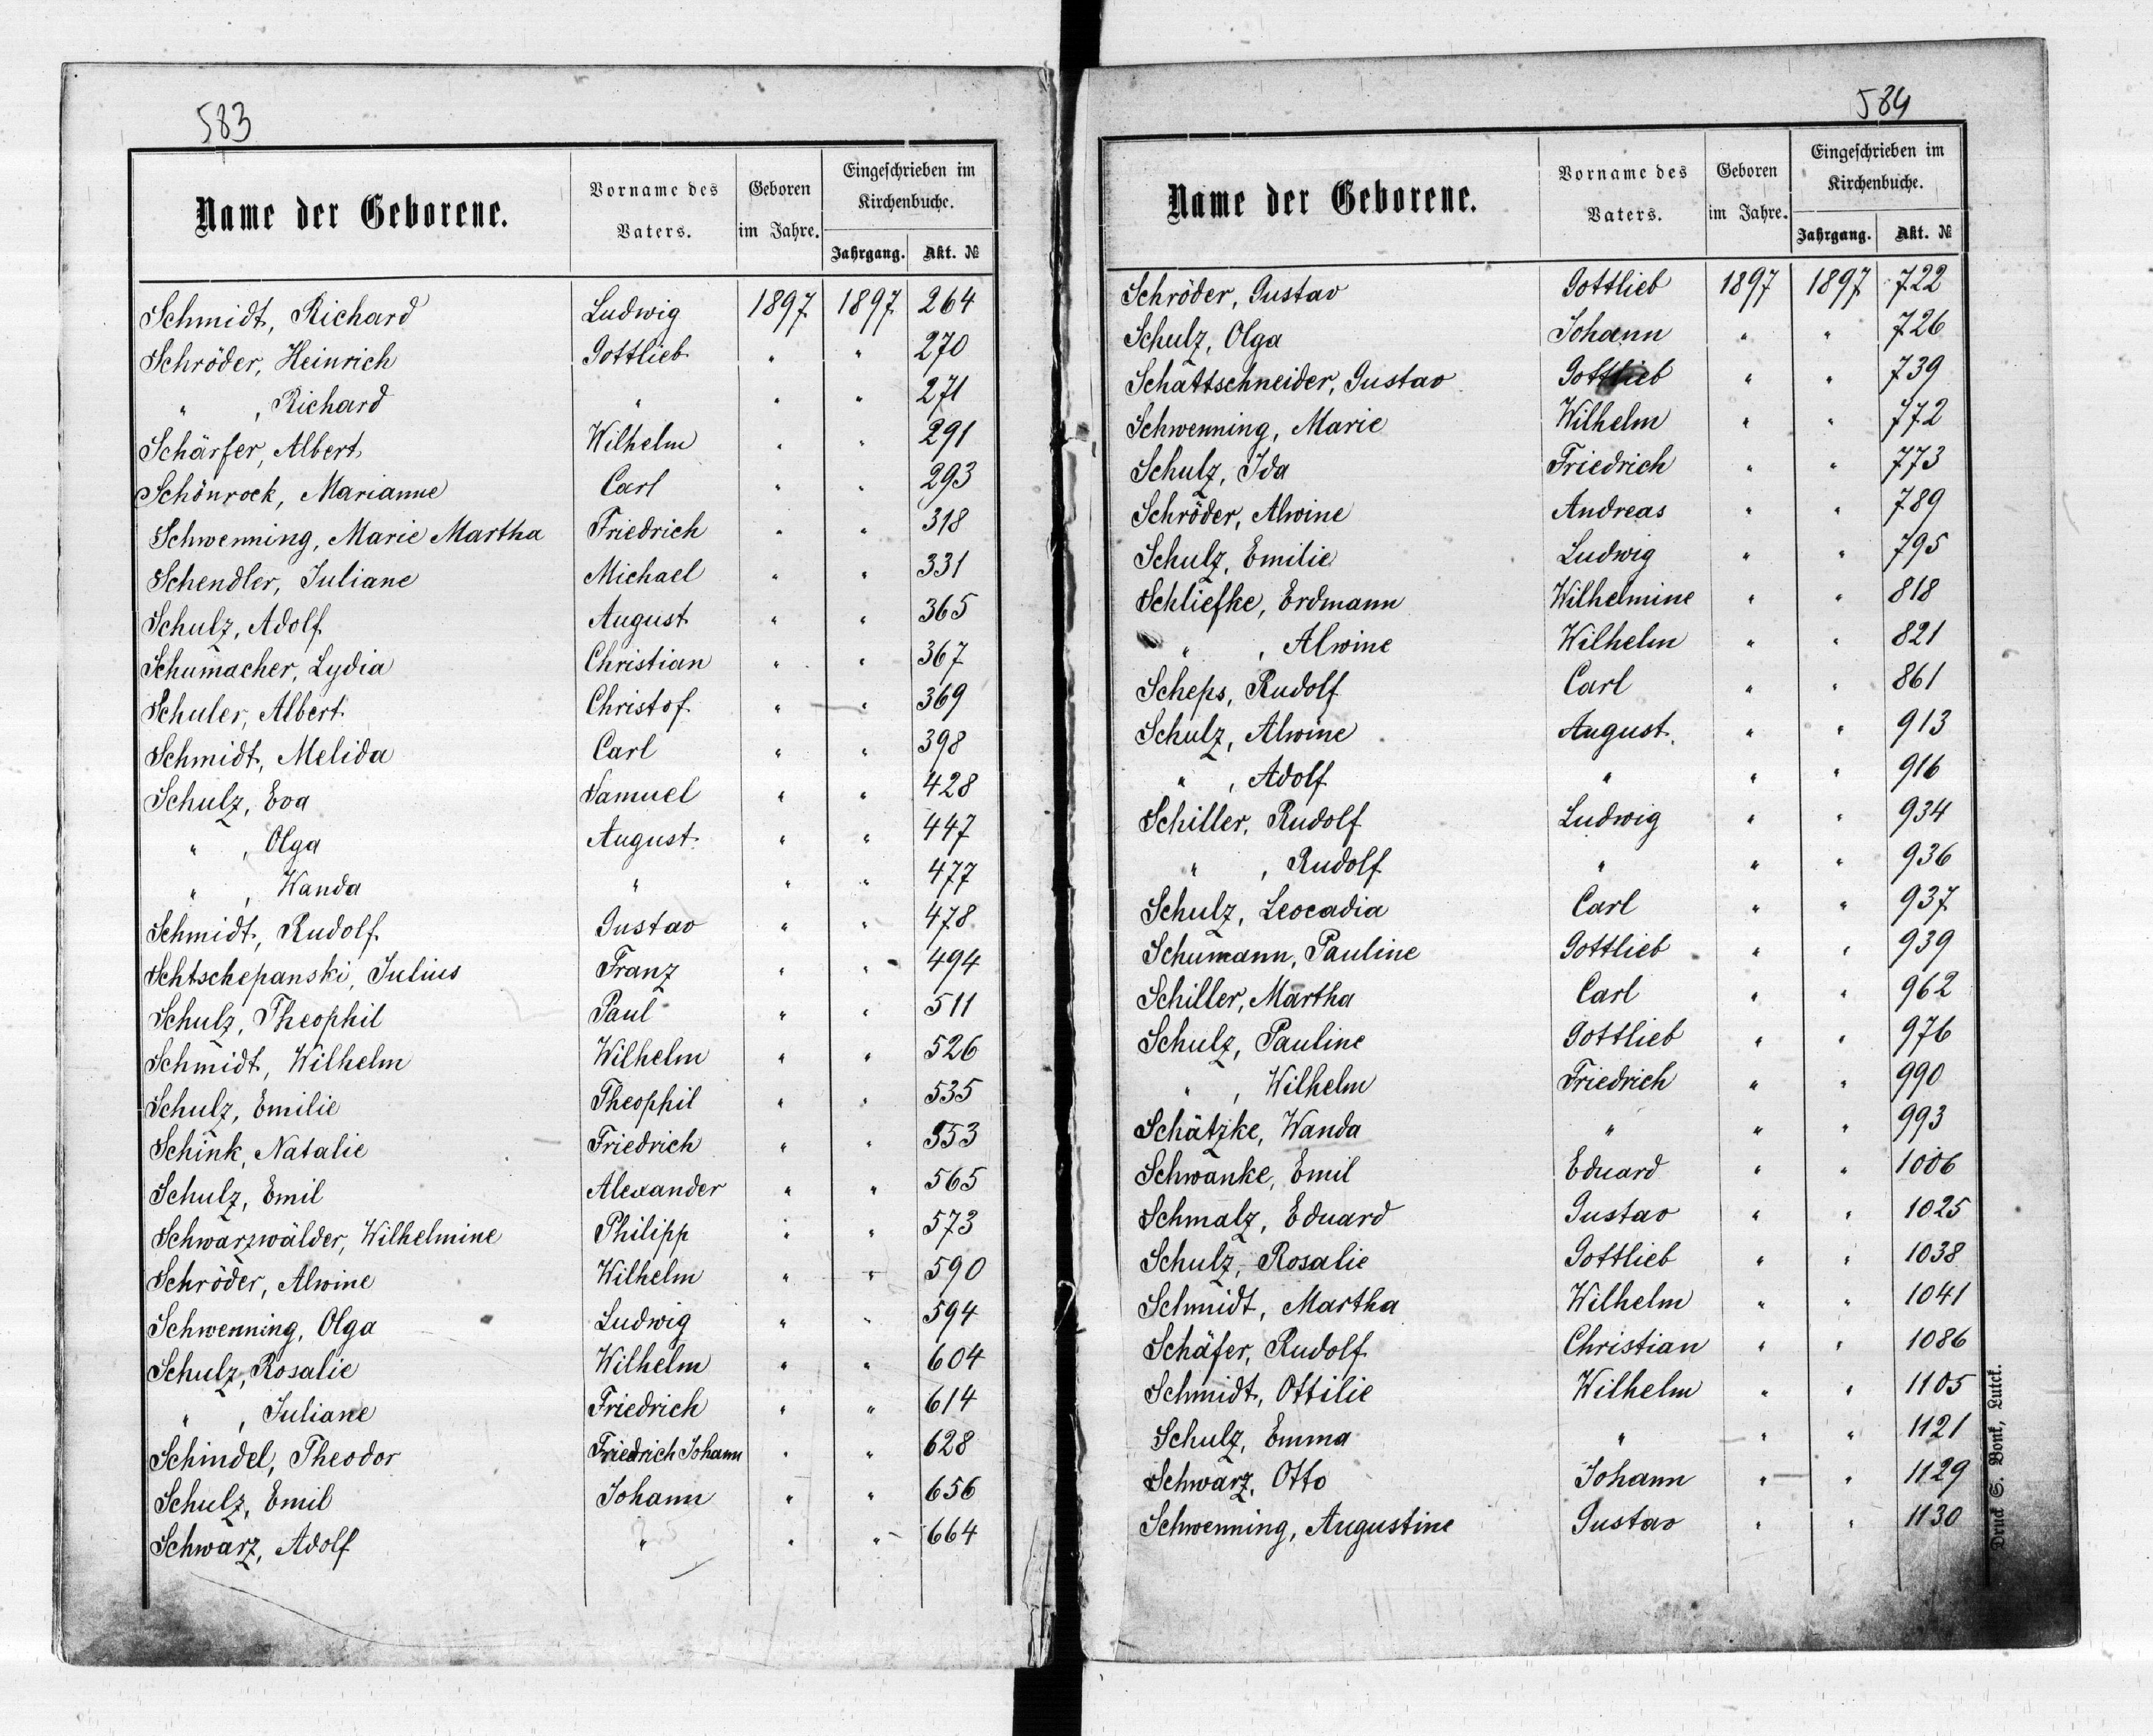 583
Name der Geborene. Vorname des Vaters. Geboren im Jahre. Eingeschrieben im Kirchenbuche. Jahrgang. Akt. №
Schmidt, Richard Ludwig 1897 1897 264
Schröder, Heinrich Gottlieb " " 270
" , Richard " " " 271
Schärfer, Albert Wilhelm " " 291
Schönrock, Marianne Carl " " 293
Schwenning, Marie Martha Friedrich " " 318
Schendler, Juliane Michael " " 331
Schulz, Adolf August " " 365
Schumacher, Lydia Christian " " 367
Schuler, Albert Christof " " 369
Schmidt, Melida Carl " " 398
Schulz, Eva Samuel " " 428
" , Olga August " " 447
" , Wanda " " " 477
Schmidt, Rudolf Gustav " " 478
Schtschepanski, Julius Franz " " 494
Schulz, Theophil Paul " " 511
Schmidt, Wilhelm Wilhelm " " 526
Schulz, Emilie Theophil " " 535
Schink, Natalie Friedrich " " 553
Schulz, Emil Alexander " " 565
Schwarzwälder, Wilhelmine Philipp " " 573
Schröder, Alwine Wilhelm " " 590
Schwenning, Olga Ludwig " " 594
Schulz, Rosalie Wilhelm " " 604
" , Juliane Friedrich " " 614
Schindel, Theodor Friedrich Johann " " 628
Schulz, Emil Johann " " 656
Schwarz, Adolf " " " 664
584
Name der Geborene. Vorname des Vaters. Geboren im Jahre. Eingeschrieben im Kirchenbuche. Jahrgang. Akt. №
Schröder, Gustav Gottlieb 1897 1897 722
Schulz, Olga Johann " " 726
Schattschneider, Gustav Gottlieb " " 739
Schwenning, Marie Wilhelm " " 772
Schulz, Ida Friedrich " " 773
Schröder, Alwine Andreas " " 789
Schulz, Emilie Ludwig " " 795
Schliefke, Erdmann Wilhelmine " " 818
" , Alwine Wilhelm " " 821
Scheps, Rudolf Carl " " 861
Schulz, Alwine August " " 913
" , Adolf " " " 916
Schiller, Rudolf Ludwig " " 934
" , Rudolf " " " 936
Schulz, Leocadia Carl " " 937
Schumann, Pauline Gottlieb " " 939
Schiller, Martha Carl " " 962
Schulz, Pauline Gottlieb " " 976
" , Wilhelm Friedrich " " 990
Schätzke, Wanda " " " 993
Schwanke, Emil Eduard " " 1006
Schmalz, Eduard Gustav " " 1025
Schulz, Rosalie Gottlieb " " 1038
Schmidt, Martha Wilhelm " " 1041
Schäfer, Rudolf Christian " " 1086
Schmidt, Ottilie Wilhelm " " 1105
Schulz, Emma " " " 1121
Schwarz, Otto Johann " " 1129
Schwenning, Augustine Gustav " " 1130
Druck S. Bonk, Lutck.